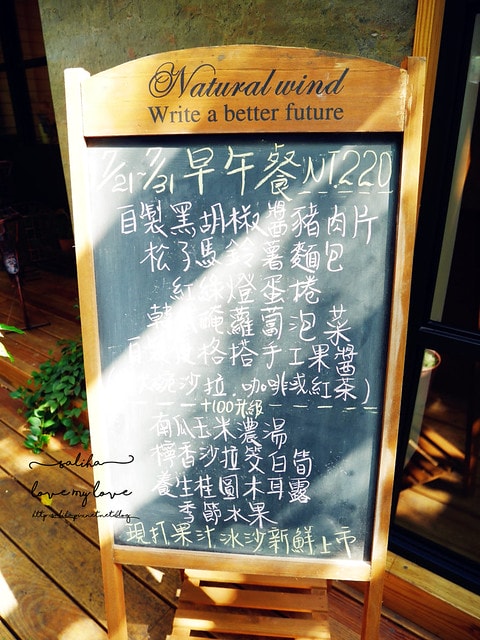 Natural wind
Write a better future
7/21~7/31 早午餐 NT.220
自製黑胡椒醬豬肉片
松子馬鈴薯麵包
紅綠燈蛋捲
韓 醃蘿蔔泡菜
格搭手工果醬
沙拉.咖啡或紅茶)
+100升級
南瓜玉米濃湯
檸香沙拉筊白筍
養生桂圓木耳露
季節水果
現打果汁冰沙新鮮上市
saliha
love my love